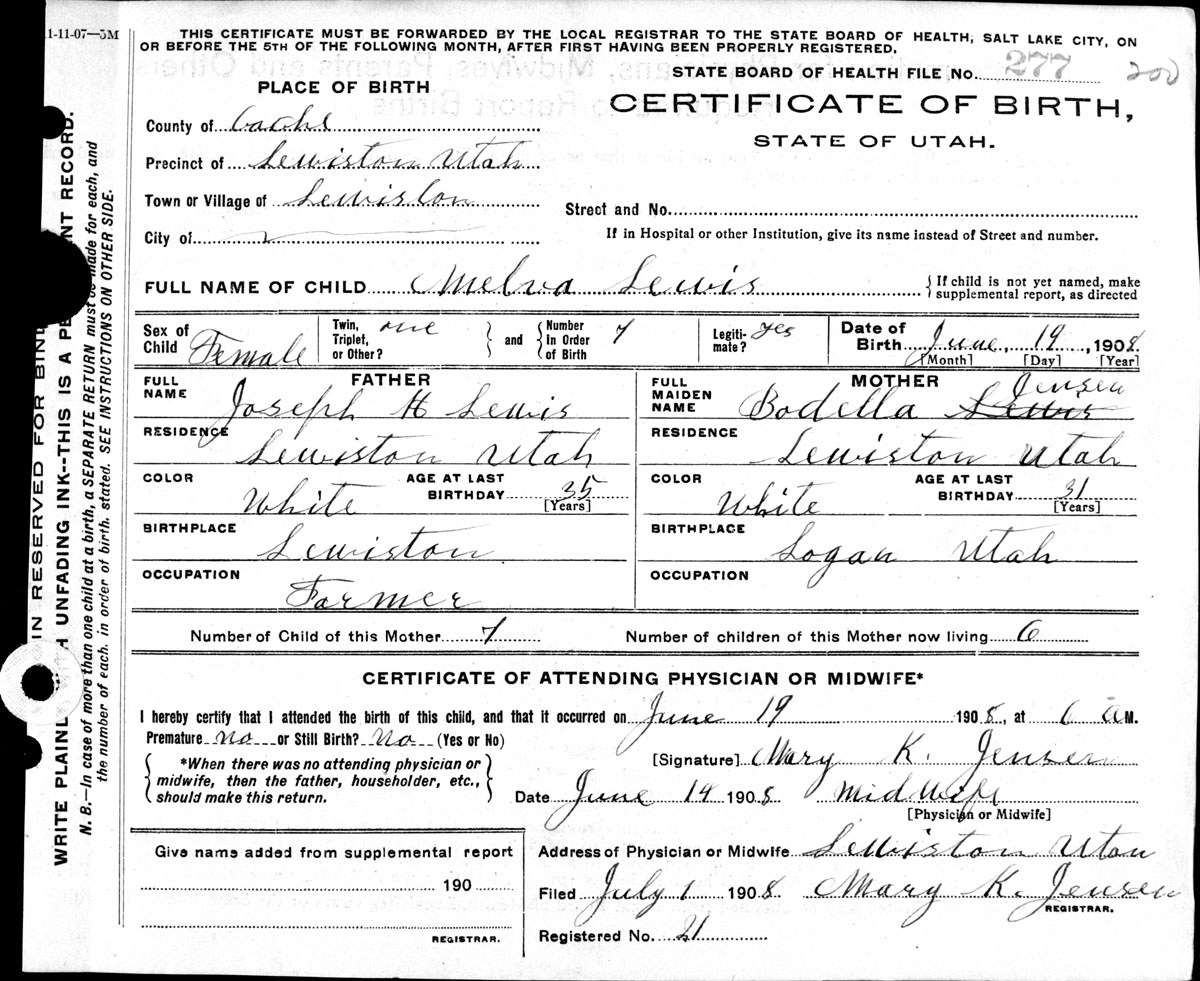 11-11-07—5M
THIS CERTIFICATE MUST BE FORWARDED BY THE LOCAL REGISTRAR TO THE STATE BOARD OF HEALTH, SALT LAKE CITY, ON
OR BEFORE THE 5TH OF THE FOLLOWING MONTH, AFTER FIRST HAVING BEEN PROPERLY REGISTERED.
STATE BOARD OF HEALTH FILE No. 277 200
PLACE OF BIRTH
CERTIFICATE OF BIRTH,
STATE OF UTAH.
County of Cache
Precinct of Lewiston Utah
Town or Village of Lewiston
Street and No.
City of
If in Hospital or other Institution, give its name instead of Street and number.
FULL NAME OF CHILD Melva Lewis
{If child is not yet named, make
supplemental report, as directed
Sex of Child Female
Twin, Triplet, or Other? one
and
Number In Order of Birth 7
Legitimate? yes
Date of Birth June 19, 1908
[Month] [Day] [Year]
FATHER
FULL NAME Joseph H Lewis
RESIDENCE Lewiston Utah
COLOR White
AGE AT LAST BIRTHDAY 35
[Years]
BIRTHPLACE Lewiston
OCCUPATION Farmer
MOTHER
FULL MAIDEN NAME Bodella Lewis Jensen
RESIDENCE Lewiston Utah
COLOR White
AGE AT LAST BIRTHDAY 31
[Years]
BIRTHPLACE Logan Utah
OCCUPATION
Number of Child of this Mother 7
Number of children of this Mother now living 6
CERTIFICATE OF ATTENDING PHYSICIAN OR MIDWIFE*
I hereby certify that I attended the birth of this child, and that it occurred on June 19 1908, at 6 a M.
Premature no or Still Birth? No (Yes or No)
*When there was no attending physician or
midwife, then the father, householder, etc.,
should make this return.
[Signature] Mary K. Jensen
Date June 14 1908 Midwife
[Physician or Midwife]
Give name added from supplemental report
190
REGISTRAR.
Address of Physician or Midwife Lewiston Utah
Filed July 1 1908 Mary K. Jensen
REGISTRAR.
Registered No. 21
IN RESERVED FOR BIND
WRITE PLAINLY WITH UNFADING INK--THIS IS A PERMANENT RECORD.
N. B.—In case of more than one child at a birth, a SEPARATE RETURN must be made for each, and
the number of each, in order of birth, stated. SEE INSTRUCTIONS ON OTHER SIDE.